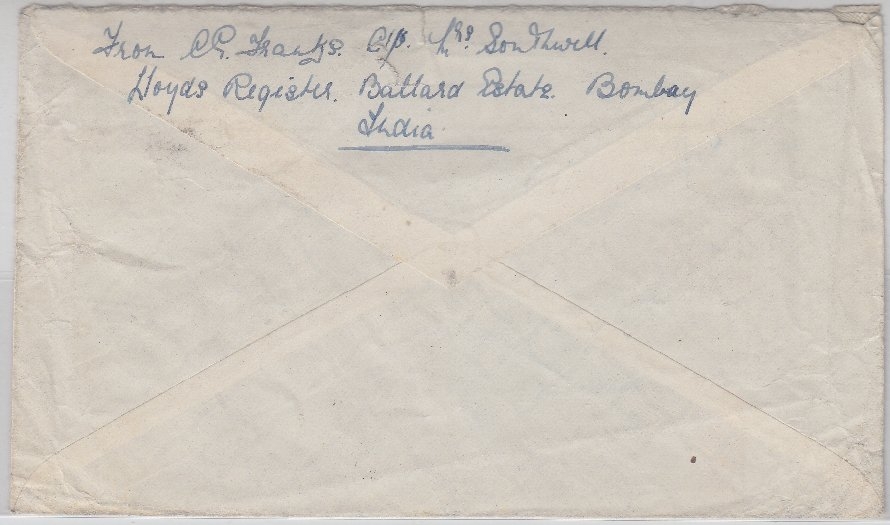 From C.R. Franks. C/o. Mrs. Southwell.
Lloyds Register. Ballard Estate. Bombay
India